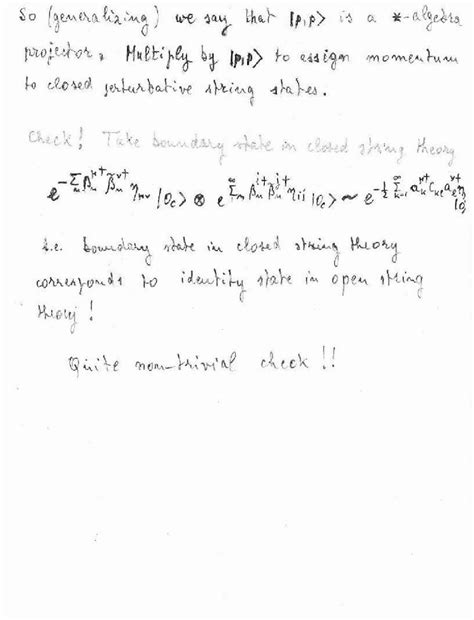 So (generalizing) we say that |p,p⟩ is a *-algebra
projector. Multiply by |p,p⟩ to assign momentum
to closed perturbative string states.
Check! Take boundary state in closed string theory
e^{-Σ_n β_n^{μ+} β̃_n^{ν+} η_{μν}} |0_c⟩ ⊗ e^{Σ_n^∞ β_n^{i+} β̃_n^{j+} η_{ij}} |0_c⟩ ~ e^{-1/2 Σ_{k=1}^∞ a_k^{μ+} C_{kl} a_l^{ν+} η} |0⟩
i.e. boundary state in closed string theory
corresponds to identity state in open string
theory!
Quite non-trivial check!!